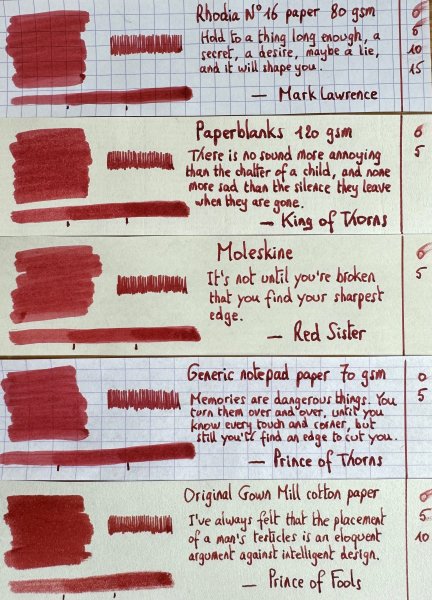 Rhodia N°16 paper 80 gsm
Hold to a thing long enough, a
secret, a desire, maybe a lie,
and it will shape you.
— Mark Lawrence
0
5
10
15
Paperblanks 120 gsm
There is no sound more annoying
than the chatter of a child, and none
more sad than the silence they leave
when they are gone.
— King of Thorns
0
5
Moleskine
It's not until you're broken
that you find your sharpest
edge.
— Red Sister
0
5
Generic notepad paper 70 gsm
Memories are dangerous things. You
turn them over and over, until you
know every touch and corner, but
still you'll find an edge to cut you.
— Prince of Thorns
0
5
Original Crown Mill cotton paper
I've always felt that the placement
of a man's testicles is an eloquent
argument against intelligent design.
— Prince of Fools
0
5
10